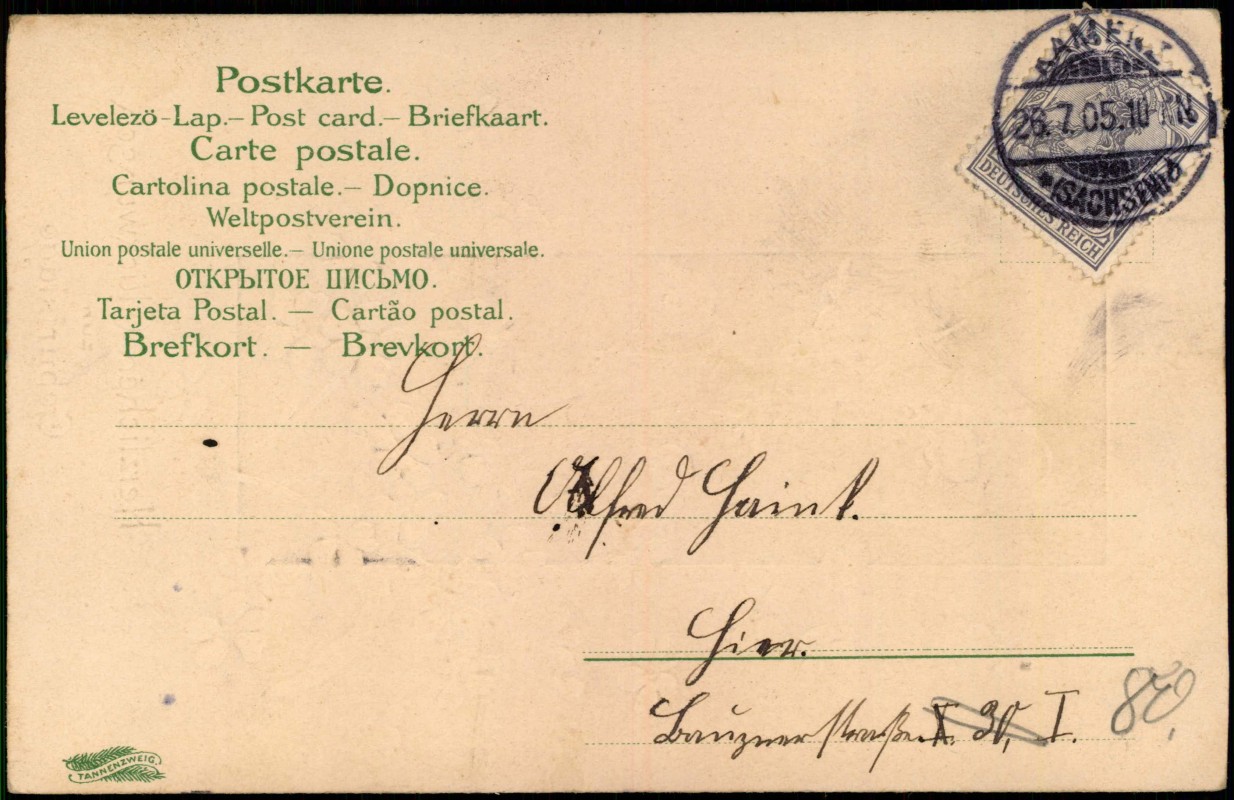 Postkarte.
Levelezö-Lap.— Post card.— Briefkaart.
Carte postale.
Cartolina postale.— Dopnice.
Weltpostverein.
Union postale universelle.— Unione postale universale.
ОТКРЫТОЕ ПИСЬМО.
Tarjeta Postal. — Cartão postal.
Brefkort. — Brevkort.
KAMENZ
26.7.05.10-11N
*(SACHSEN)d
DEUTSCHES REICH
Herrn
Alfred Haink.
Hier.
Bauznerstraße 30, I.
TANNENZWEIG.